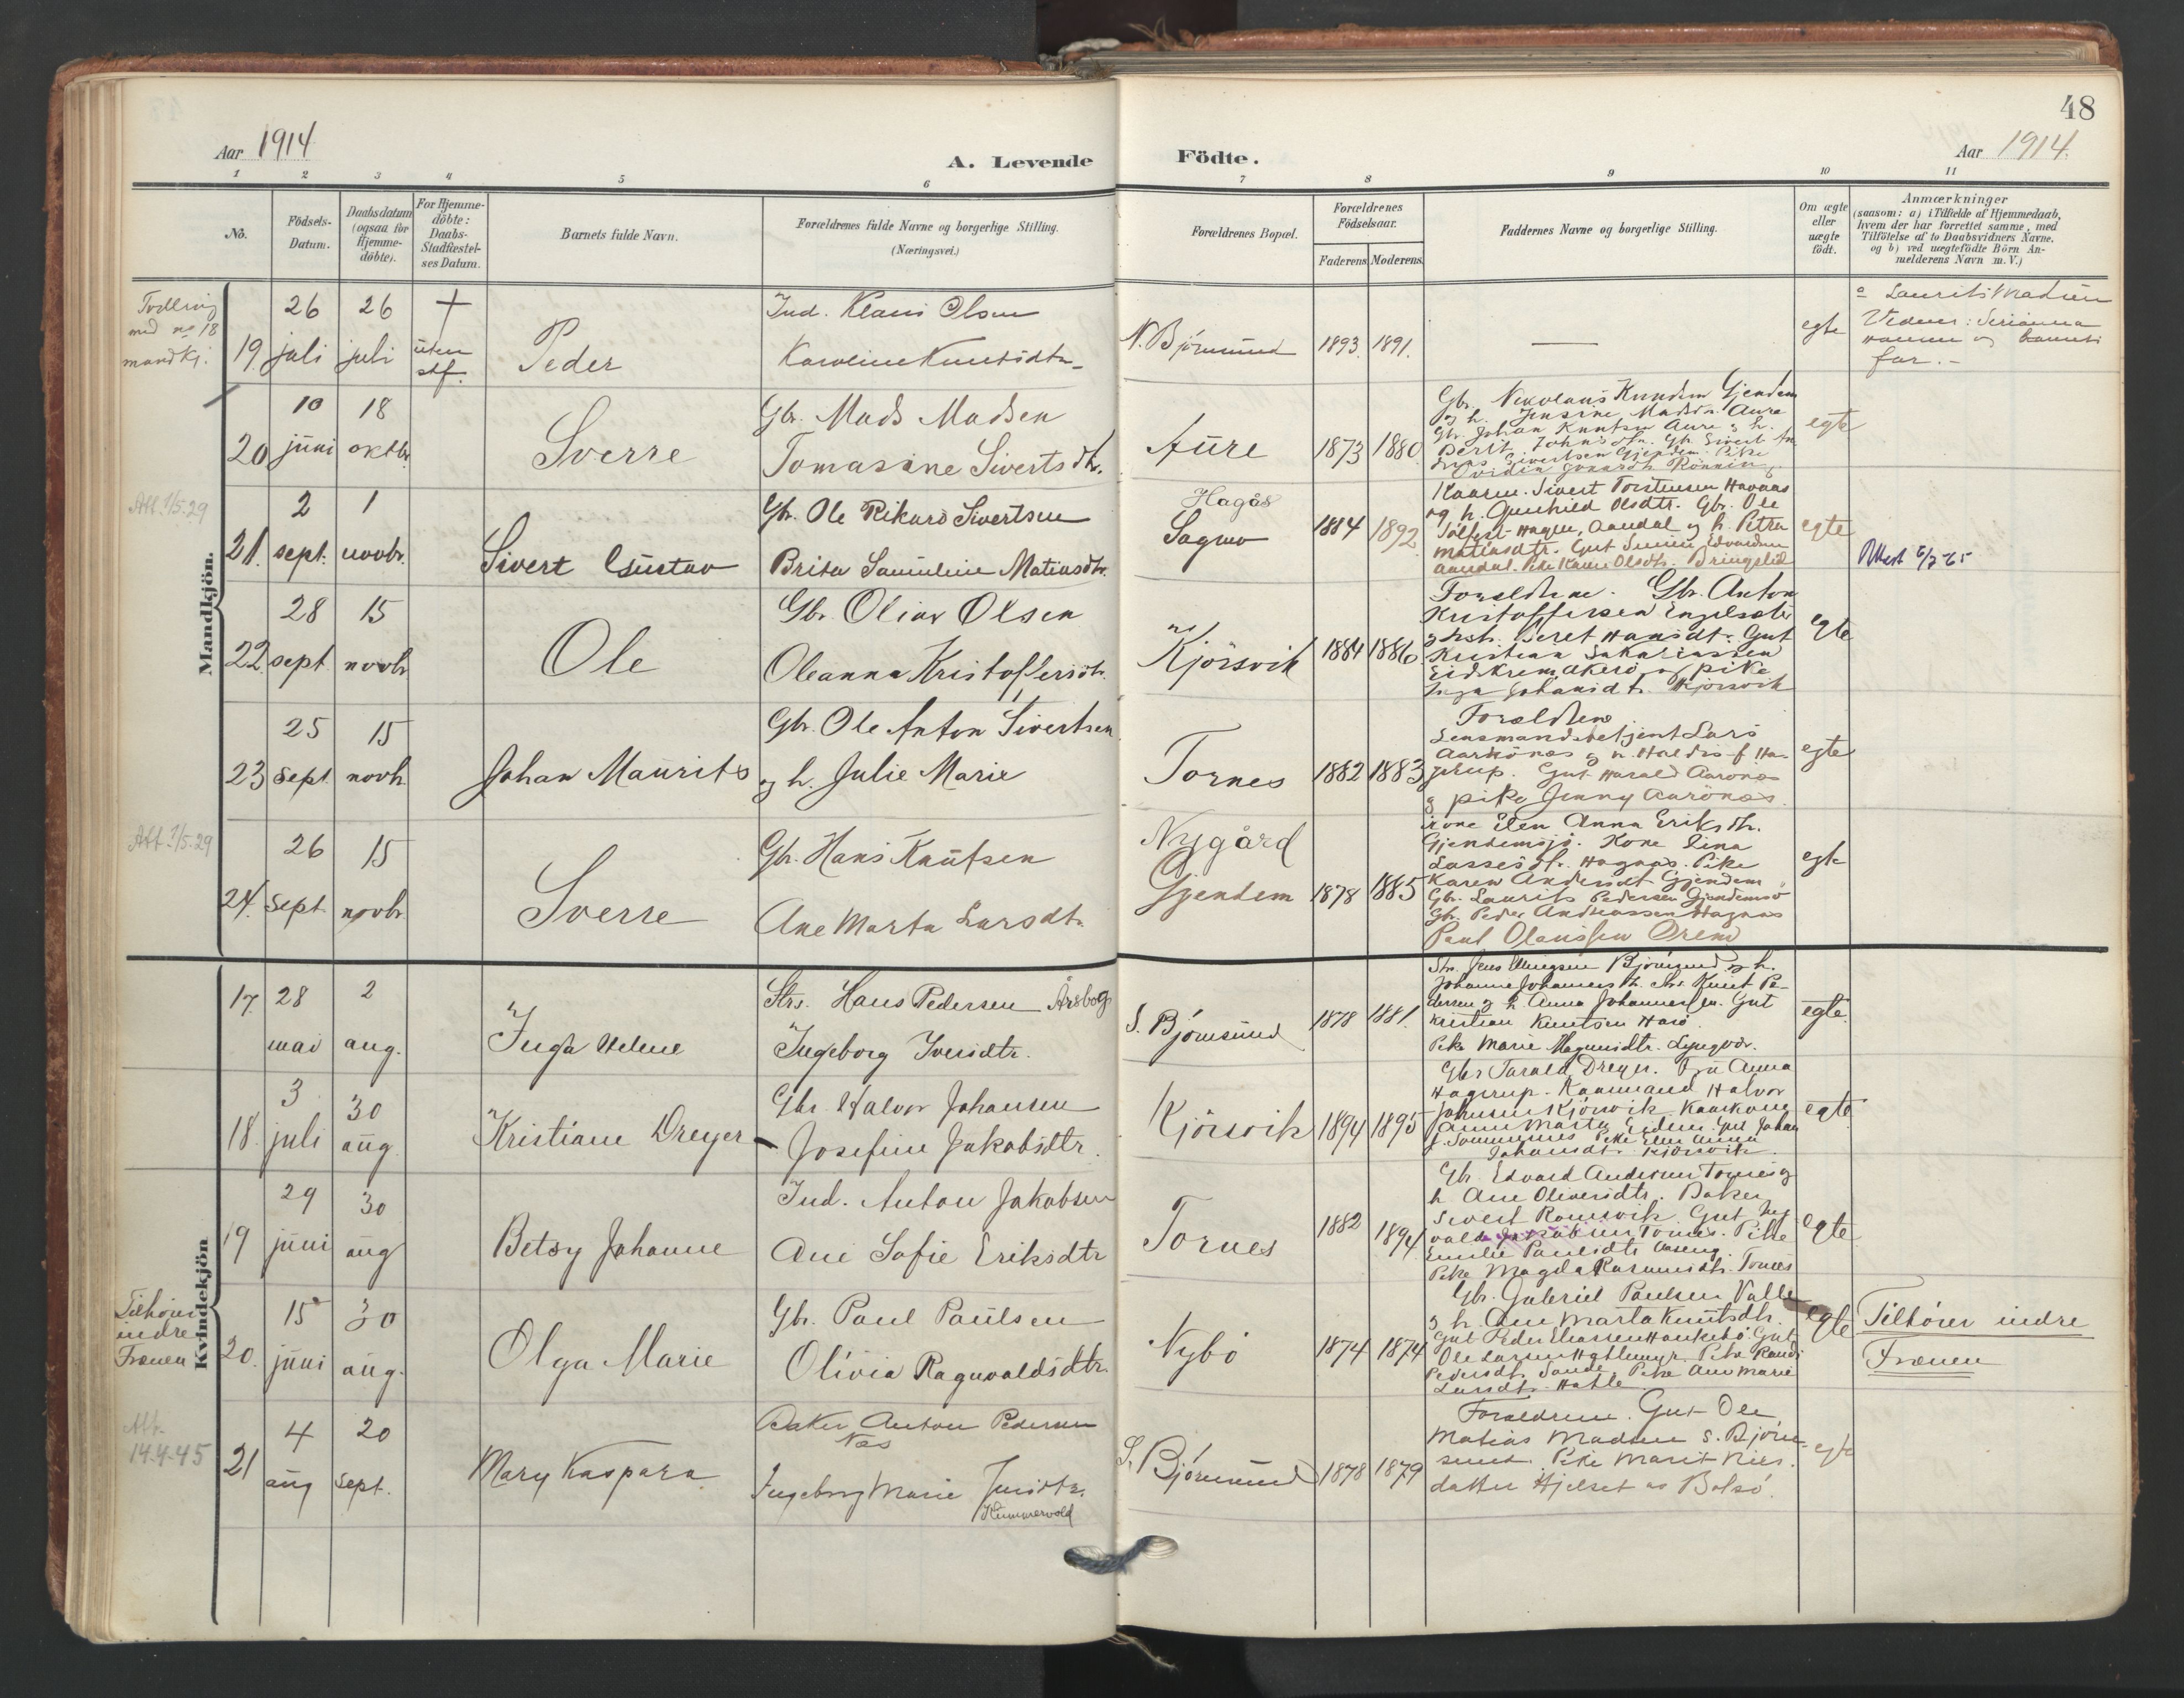 48
Aar 1914
A. Levende
Födte.
Aar 1914.
1 2 3 4 5 6 7 8 9 10 11
No.
Födsels-
Datum.
Daabsdatum
(ogsaa for
Hjemme-
döbte).
For Hjemme-
döbte:
Daabs-
Stadfæstel-
ses Datum.
Barnets fulde Navn.
Forældrenes fulde Navne og borgerlige Stilling.
(Næringsvei.)
Forældrenes Bopæl.
Forældrenes
Födselsaar.
Faderens. Moderens.
Faddernes Navne og borgerlige Stilling.
Om ægte
eller
uægte
födt.
Anmærkninger
(saasom: a) i Tilfælde af Hjemmedaab,
hvem der har forrettet samme, med
Tilföielse af to Daabsvidners Navne,
og b) ved uægtefödte Börn An-
melderens Navn m. V.)
Mandkjön.
Tvilling
med no 18
mandkj.
19. 26 juli
26 juli
+
uten
stf.
Peder
Ind. Klaus Olsen
Karoline Knutsdtr.
N. Bjørnsund
1893. 1891.
—
egte
Laurits Madsen
far. -
20 10 juni
18 oktbr.
Sverre
Gbr. Mads Madsen
Tomasine Sivertsdtr.
Aure
1873 1880
Gbr. Nikolaus Knudsen Gjendem
og h. Jensine Madsdtr. Aure
Gbr. Johan Knutsen Aure og h.
Berit Johnsdtr. Gbr. Sivert An
dreas Sivertsen Gjendem. Pike
egte
Att. 1/5.29
21. 2 sept.
1 novbr.
Sivert Gustav
Gbr. Ole Rikard Sivertsen
Brita Samueline Matiasdtr.
Hagås
Sagmo
1884 1892
Kaarm. Sivert Torstensen Havnaas
og h. Gunhild Olsdtr. Gbr. Ole
Hagen, Aandal og h. Petra
Matiasdtr. Gut
Aandal. Pike Karen Olsdtr. Bringslid
egte
Attest 5/3 65
22 28 sept.
15 novbr.
Ole
Gbr. Oliar Olsen
Oleanna Kristoffersdtr.
Kjörsvik
1884 1886
Forældrene. Gbr. Anton
Kristoffersen Engelsæter
Beret Hansdtr. Gut
Kristian Sakariassen
Eidskrem Akerö og pike
Inga Johansdtr. Kjörsvik
egte
23 25 sept.
15 novbr.
Johan Maurits
Gbr. Ole Anton Sivertsen
og h. Julie Marie
Tornes
1882 1883
Forældrene
Lensmandsbetjent Lars
Aarönæs og h. Haldis f. Ha-
gerup. Gut Harald Aarönæs
og pike Jenny Aarönæs.
egte
Att. 1/5.29
24. 26 sept
15 novbr.
Sverre
Gbr. Hans Knutsen
Ane Marta Larsdtr.
Nygård
Gjendem
1878 1885
Kone Elen Anna Eriksdtr.
Gjendemsjö. Kone Lina
Lassesdtr. Hagnæs. Pike
Karen Andersdt. Gjendem
Gbr. Laurits Pedersen Gjendemsö
Gbr. Peder Andreassen Hagnæs
Paul Olaussen Orem
egte
Kvindekjön
17. 28 mai
2 aug.
Inga Helene
Strs. Hans Pedersen Årsbog
Ingeborg Iversdtr.
S. Björnsund
1878 1881.
Str. Jens Bjørnsund og h.
Johanne Johannesdtr. Str. Knut Pe-
dersen og h. Anna Johannessen. Gut
Kristian Knutsen Harö.
Pike Marie Magnusdtr. Lyngvær.
egte.
18. 3 juli
30 aug
Kristiane Dreyer
Gbr. Halvor Johansen
Josefine Jakobsdtr.
Kjörsvik
1894 1895
Gbr. Tarald Dreyer. Fru Anna
Hagerup. Kaarmand Halvor
Johnsen Kjörsvik Kaarkone
Ann Marta Gut Johan
J. Sommernes Pike Elen Anna
Johansdtr. Kjörsvik.
egte
19 29 juni
30 aug
Betsy Johanne
Ind. Anton Jakobsen
Ane Sofie Eriksdtr
Tornes
1882 1894
Gbr. Edvard Andersen Tornes og
h. Ane Oliversdtr. Baker
Sivert Ramsvik. Gut
vald Jakobsen Tornes. Pike
Emilie Paulsdtr.
Pike Magda Rasmusdtr. Tornes
egte
Tilhører
indre
Frænen
20. 15 juni
30 aug.
Olga Marie
Gbr. Paul Paulsen
Olivia Ragnvaldsdtr.
Nybö
1874 1874
Gbr. Gabriel Paulsen Valle
og h. Ane Marta Knutsdtr.
Gut Peder Eliassen Haukebö. Gut
Ole Larsen Pike Randi
Pedersdtr. Sande. Pike Ane Marie
Larsdtr. Hatle
egte
Tilhører indre
Frænen
Att.
14-4-45
21 4 aug
20 sept.
Mary Kaspara
Baker Anton Pedersen
Næs
Ingeborg Marie Jensdtr.
Hummervold
S. Björnsund
1878 1879
Forældrene. Gut Ole
Matias Madsen S. Björn-
sund. Pike Marit Nils-
datter Hjelset av Bolsö.
egte